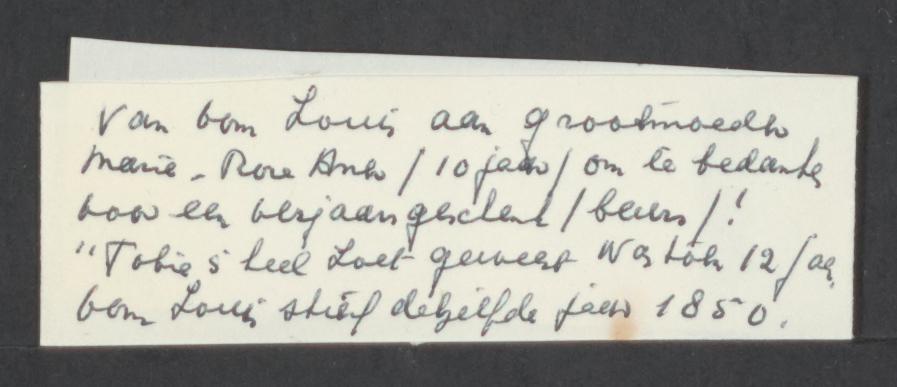 Van bom Louis aan grootmoeder
Marie - Rose / 10 jaar / om te bedanken
voor een verjaarsgeschenk / beurs / !
"Tobie is heel zoet geweest 12 jaar
bom Louis stierf dezelfde jaar 1850.